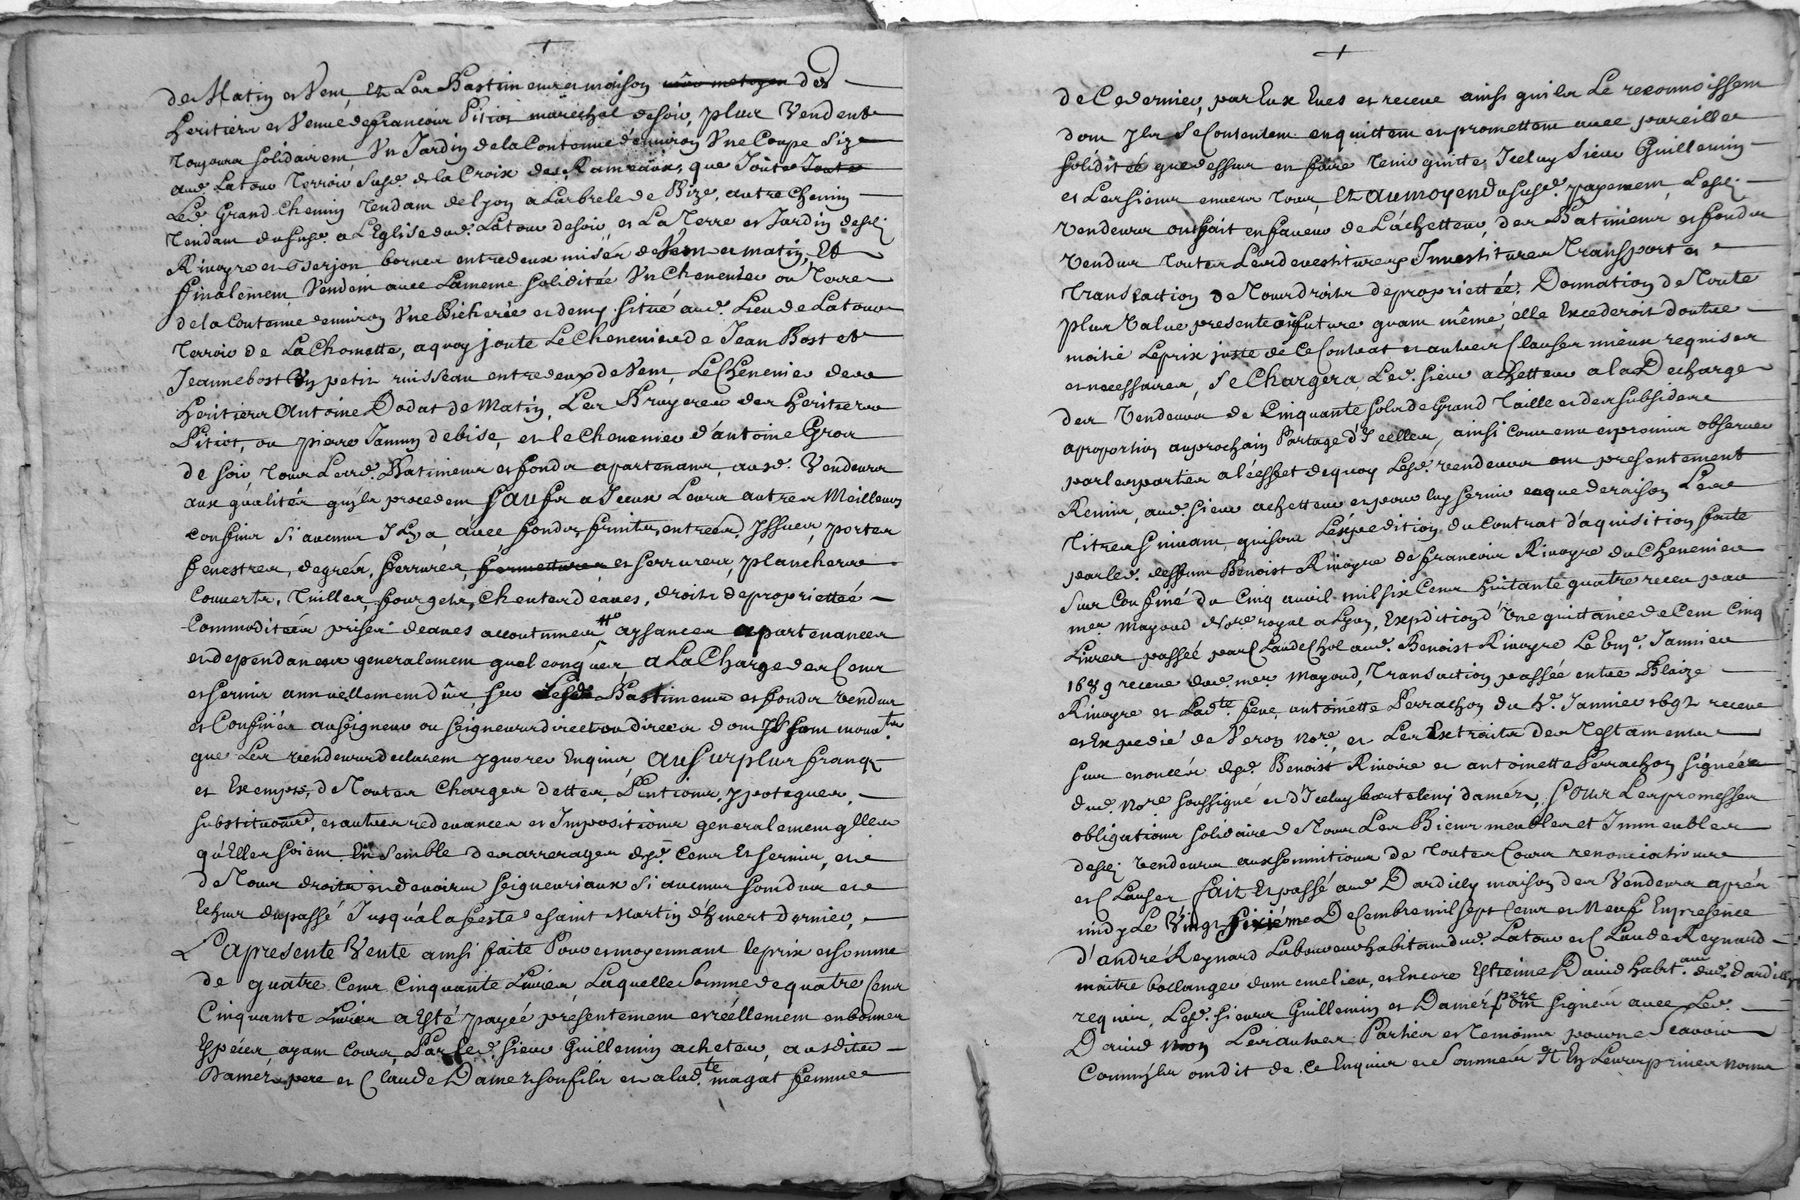 de Matin et Vent, Et Les Bastiment et maison des
heritiers et Veuve de francois Pitiot marechal de soir, plus Vendent
toujours solidairemt Un Jardin de la Contenue d'environ Une Coupe Size
aud. Latour Terroir susd. de la Croix des Rameaux, que Joute
Led. Grand Chemin tendant de lyon a Larbrele de Bize, autre chemin
tendant dususd. a L'Eglise dud. Latour de soir, et La Terre et Jardin desd.
Rivoyre et Berjon bornes entre deux misés de Vent et matin, Et
finalement Vendent avec La meme solidité Un Chenevier ou Terre
de la Contenue denviron Une Bicherée et demy situé aud. Lieu de Latour
Terroir de La Chomette, a quoy joute Le Chenevier de Jean Bost et
Jeanne bost Un petit ruisseau entre deux de Vent, Le Chenevier des
heritiers Antoine Dodat de Matin, Les Bruyeres des heritiers
Pitiot, ou pierre Jamin de bise, et le Chenevier d'antoine Gros
de soir, tous Lesd. Batiments et fonds apartenants, ausd. Vendeurs
aux qualités quils procedent sauf a Iceux Leurs autres Meilleurs
confins si aucuns Il y a, avec fonds, fruits, entrées, Issues, portes
fenestres, degrés, ferrures, et serrures, planchers
Couverts, tuilles, fourgets, Cheutes deaues, droits de proprietteé
Commoditées prises deaues accoutumées aysances apartenances
et dependances generalement quelconques A La Charge des Cens
et servis annuellement dûs, sur Lesd. Bastiments et fonds vendus
et Confinés au seigneur ou seigneurs direct ou directs dont Ils sont mouvts
que Les vendeurs declarent ygnorer Enquis, Au surplus francq
et Exempts, de Toutes Charges dettes, Pentions, ypoteques,
substitutions, et autres redevances et Impositions generalement qlles
qu'Elles soient Ensemble des arrerages desd. Cens Et servis, et
de Tous droits et devoirs seigneuriaux si aucuns sont dus et
Echus du passé Jusqu'a la feste de saint Martin d'hivert dernier,
La presente Vente ainsi faite Pour et moyennant le prix et somme
de quatre Cens Cinquante Livres, Laquelle Somme de quatre Cens
Cinquante Livres a Esté payéé présentement et réellement en bonnes
Espéces ayant Cours, Par Led. sieur Guillemin acheteur, ausdits
Damez pere et Claude Damez son fils et a ladte magat femme
de Ce dernier, par Eux Eues et receue ainsi quils Le reconnoissent
dont Ils se Contentent en quittent et promettent avec pareille
solidité que dessus en faire tenir quitte, Iceluy Sieur Guillemin
et Les siens envers tous, Et au moyen dususd. payement, Lesd.
Vendeurs ont fait en faveur de L'achetteur, des Bâtiments et fonds
Vendus toutes Les devestitures Investitures Transport et
Translaction de Tous droits de proprietteé, Donnation de Toute
plus Value presente et future quant même élle Excederoit d'outre
moitié Le prix juste de Ce Contrat et autres Clauses mieux requises
et necessaires, Se Chargera Led. sieur achetteur a la Decharge
des Vendeurs de Cinquante sols de Grand Taille et des subsides
a proportion au prochain Partage d'Icelles, ainsi convenu et promis observer
par les parties a l'effet de quoy Lesd. vendeurs ont presentement
Remis, aud. sieur achetteur, et pour luy servir en que de raison Les
titres suivant, qui sont Lexpedition du Contrat d'aquisition faite
par led. deffunt Benoist Rivoyre de francois Rivoyre du Chenevier
sus Confiné du Cinq avril mil six Cens huitante quatre receu par
mer Mayoud Nore royal a Lyon, Expedition d'Une quittance de Cent Cinq
Livres passée par Claude Chol aud. Benoist Rivoyre Le Onze Janvier
1689 receue dud. mer Mayoud, Transaction passée entre Blaize
Rivoyre et Ladte. feue antoinette Perrachon du 4e. Janvier 1692 receue
et Expedié de Veron Nore, et Les Extraits des Testaments
sus enoncés desd. Benoist Rivoire et antoinette Perrachon signéés
dud. Nore soussigné et d'Iceluy bartelemi damez, Sous Les promesses
obligations solidaire de Tous Les Biens meubles et Immeubles
desd. vendeurs aux soumitions de toutes Cours renonciations
et Clauses, fait Et passé aud. Dardilly maison des Vendeurs aprés
midy Le Vingt sixiéme Decembre mil sept Cens et Neuf En presence
d'andré Reynard Laboureur habitant dud. Latour et Claude Reynard
maitre boullanger dem eme lieu, et Encore Estienne David habt. aussi dud. dardilly
requis, Lesd. sieurs Guillemin et Damez pere ont signés avec Led.
David non Les autres Parties et Temoins pour ne Scavoir
Comm'ils ont dit de Ce Enquis et Sommés Et En Leurs prives noms